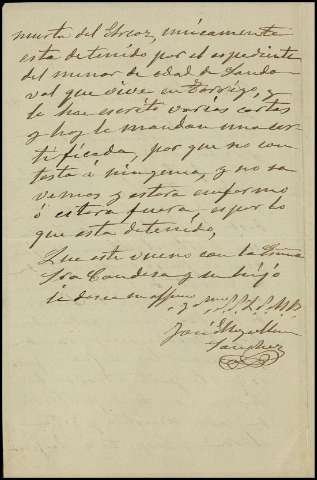 muerte del Stcoz, unicamente
esta detenido por el espediente
del menor de edad de Sando-
val que vive en Torrigo, y
le hao escrito varias cartas
y hoy le mandan una cer-
tificada, por que no con-
testa á ninguna, y no sa
vemos y estara enfermo
ó estara fuera, es por lo
que esta detenido,
Que este vueno con la Exma
Sra Condesa y su hijo
le desea su affmo
y
José
Sanchez